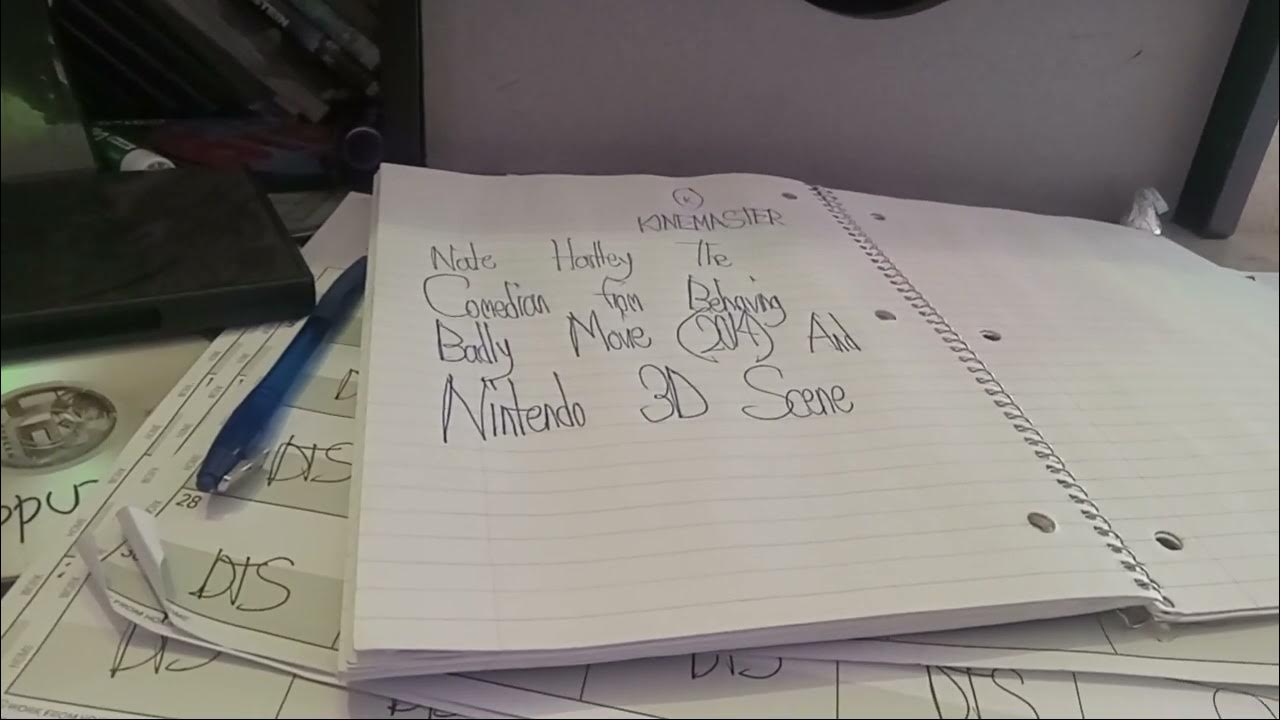 K
KINEMASTER
Nate Hartley The
Comedian from Behaving
Badly Movie (2014) And
Nintendo 3D Scene
DTS
28
DTS
DTS
DTS
DTS